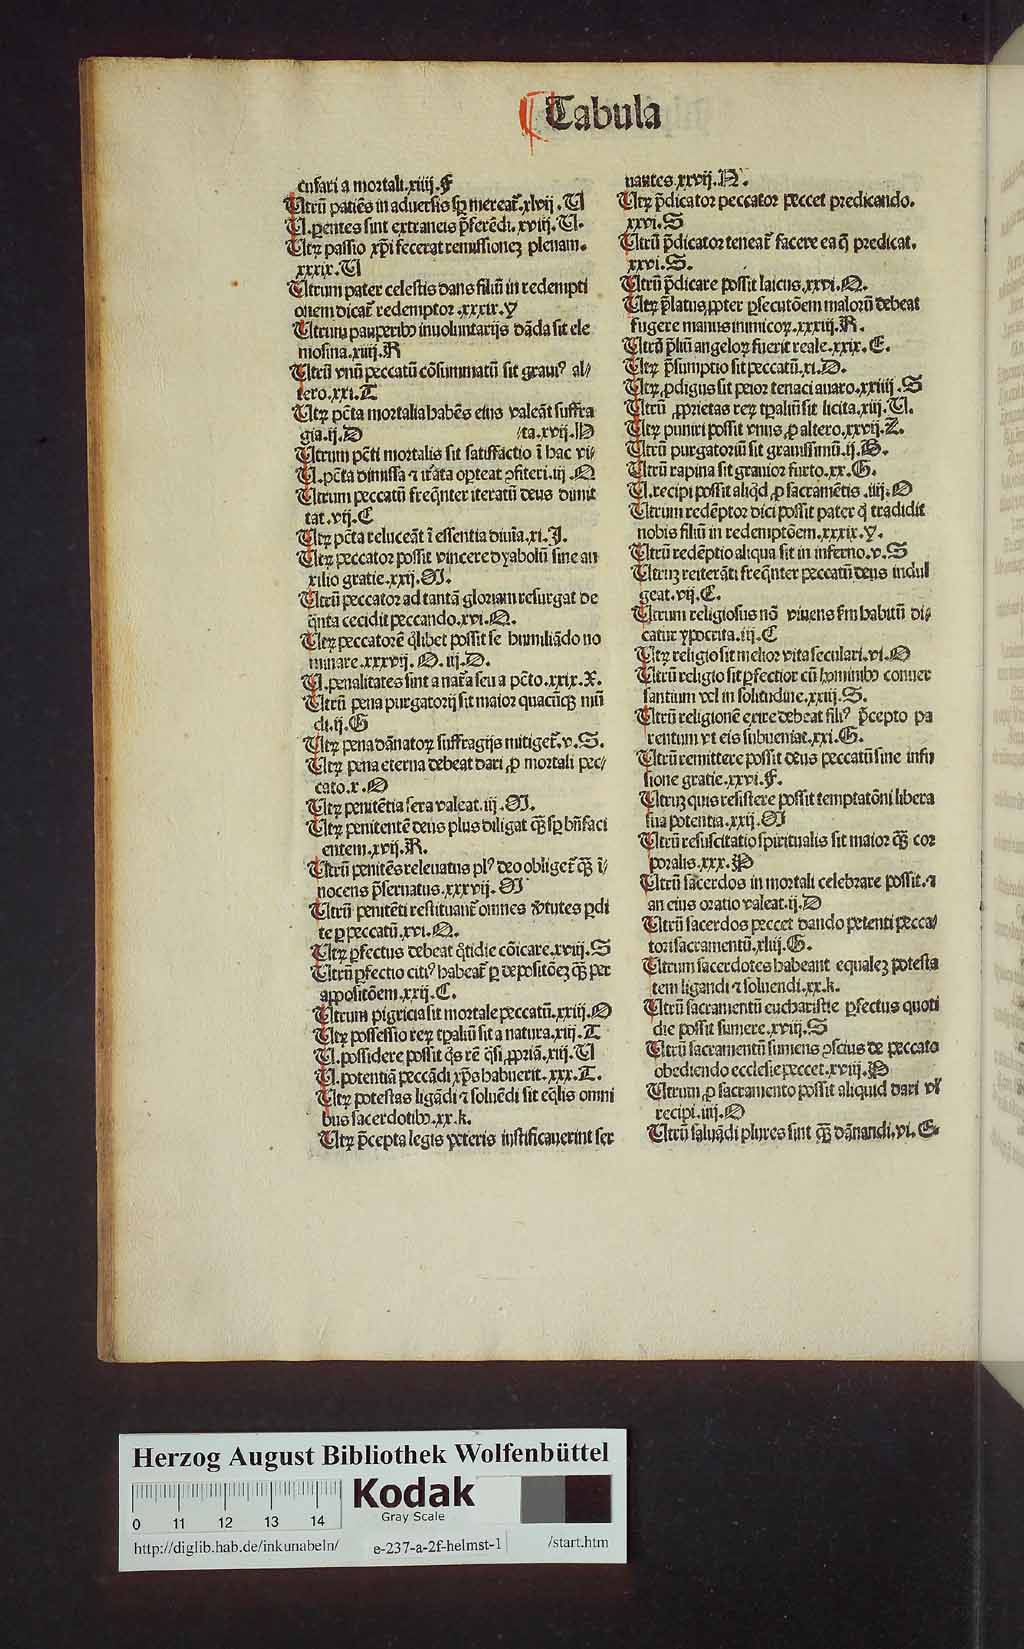 Tabula
cusari a mortali.xiiij.F
Utrū patiēs in aduersis sp̄ mereat᷑.xlvij.U
U.pentes sint extraneis p̄ferēdi.xviij.U.
Utrꝝ passio xp̄i fecerat remissionez plenam.
xxxix.U
Utrum pater celestis dans filiū in redempti
onem dicat᷑ redemptor.xxxix.Y
Utrum pauperibꝰ inuoluntarijs dāda sit ele
mosina.xiiij.R
Utrū vnū peccatū cōsummatū sit graui⁹ al/
tero.xxi.T
Utrꝝ pctā mortalia habēs eius valeāt suffra
gia.ij.D /ta.xvij.H
Utrum pcti mortalis sit satisfactio ī hac vi-
U.pctā dimissa ⁊ itāta oꝑteat ꝯfiteri.iij.Q
Utrum peccatū freq̄nter iteratū deus dimit
tat.vij.C
Utrꝝ pctā reluceāt ī essentia diuīa.xi.J.
Utrꝝ peccator possit vincere dyabolū sine au
xilio gratie.xxij.M.
Utrū peccator ad tantā gloriam resurgat de
q̄nta cecidit peccando.xvi.Q.
Utrꝝ peccatorē q̄libet possit se humiliādo no
minare.xxxvij.O.iij.D.
U.penalitates sint a nat᷑a seu a pctō.xxix.X.
Utrū pena purgatorij sit maior quacūqꝫ mū
di.ij.G
Utrꝝ pena dānatoꝝ suffragijs mitiget᷑.v.S.
Utrꝝ pena eterna debeat dari ꝓ mortali pec/
cato.x.O
Utrꝝ penitētia sera valeat.iij.M.
Utrꝝ penitentē deus plus diligat q̄ꝫ sp̄ bn̄faci
entem.xvij.R.
Utrū penitēs releuatus pl⁹ deo obliget᷑ q̄ꝫ ī/
nocens p̄seruatus.xxxvij.M
Utrū penitēti restituant᷑ omnes v̄tutes ꝑdi
te ꝑ peccatū.xvi.Q.
Utrꝝ ꝑfectus debeat q̄tidie cōicare.xviij.S
Utrū ꝑfectio citi⁹ habeat᷑ ꝑ depositōez q̄ꝫ per
appositōem.xxij.C.
Utrum pigricia sit mortale peccatū.xxiij.O
Utrꝝ possessio reꝝ tꝑaliū sit a natura.xiij.T
U.possidere possit q̄s rē q̄si ꝓpriā.xiij.U
U.potentiā peccādi xp̄s habuerit.xxx.T.
Utrꝝ potestas ligādi ⁊ soluēdi sit eq̄lis omni
bus sacerdotibꝰ.xx.k.
Utrꝝ p̄cepta legis veteris iustificauerint ser
uantes.xxvij.N.
Utrꝝ p̄dicator peccator peccet predicando.
xxvi.S
Utrū p̄dicator teneat᷑ facere ea q̄ predicat.
xxvi.S.
Utrū p̄dicare possit laicus.xxvi.Q.
Utrꝝ p̄latus ꝓpter ꝑsecutōem maloꝝ debeat
fugere manus inimicoꝝ.xxxiij.R.
Utrū p̄liū angeloꝝ fuerit reale.xxix.E.
Utrꝝ p̄sumptio sit peccatū.xi.D.
Utrꝝ ꝓdigus sit peior tenaci auaro.xxiiij.S
Utrū ꝓprietas reꝝ tꝑaliū sit licita.xiij.U.
Utrꝝ puniri possit vnus ꝓ altero.xxvij.Z.
Utrū purgatoriū sit grauissimū.ij.B.
Utrū rapina sit grauior furto.xx.G.
U.recipi possit aliq̄d ꝓ sacramētis.iiij.O
Utrum redēptor dici possit pater q̄ tradidit
nobis filiū in redemptōem.xxxix.Y.
Utrū redēptio aliqua sit in inferno.v.S
Utruꝫ reiterāti freq̄nter peccatū deus indul
geat.vij.C.
Utrum religiosus nō viuens ẜm habitū di-
catur ypocrita.iij.C
Utrꝝ religio sit melior vita seculari.vi.O
Utrū religio sit ꝑfectior cū hominibꝰ conuer
santium vel in solitudine.xxiij.S.
Utrū religionē exire debeat fili⁹ p̄cepto pa
rentum vt eis subueniat.xxi.G.
Utrū remittere possit deus peccatū sine infu
sione gratie.xxvi.F.
Utruꝫ quis resistere possit temptatōni libera
sua potentia.xxij.M
Utrū resuscitatio spiritualis sit maior q̄ꝫ cor
poralis.xxx.P
Utrū sacerdos in mortali celebrare possit.⁊
an eius oratio valeat.ij.D
Utrū sacerdos peccet dando petenti pecca/
tori sacramentū.xliij.G.
Utrum sacerdotes habeant equalez potesta
tem ligandi ⁊ soluendi.xx.k.
Utrū sacramentū eucharistie ꝑfectus quoti
die possit sumere.xviij.S
Utrū sacramentū sumens ꝯscius de peccato
obediendo ecclesie peccet.xviij.P
Utrum ꝓ sacramento possit aliquid dari vl̄
recipi.iiij.O
Utrū saluādi plures sint q̄ꝫ dānandi.vi.E.
Herzog August Bibliothek Wolfenbüttel
Kodak
Gray Scale
0 11 12 13 14
http://diglib.hab.de/inkunabeln/ e-237-a-2f-helmst-1 /start.htm